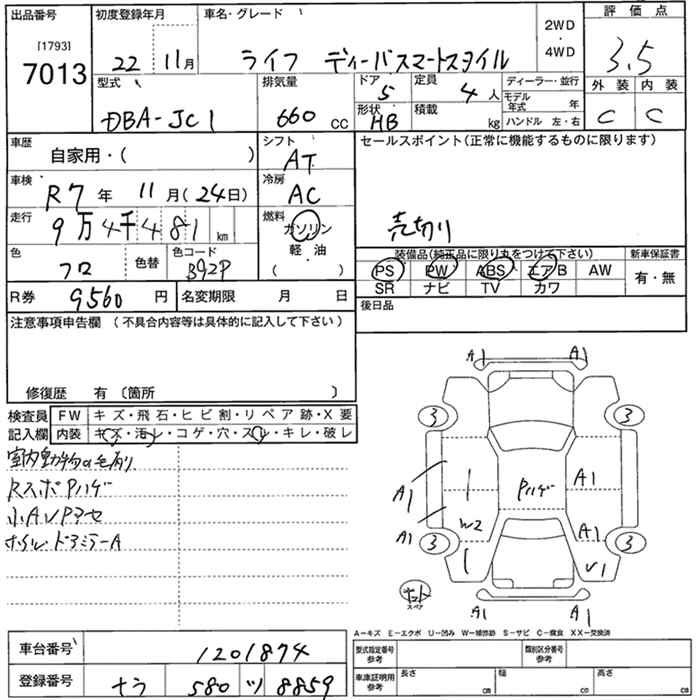 出品番号 初度登録年月 車名・グレード 2WD・4WD 評価点
[1793]
7013 22 11月 ライフ ディーバスマートスタイル 3.5
型式 排気量 ドア 5 定員 4人 ディーラー・並行 外装 内装
DBA-JC1 660 CC 形状 HB 積載 kg モデル年式 年 C C
ハンドル 左・右
車歴 自家用・( ) シフト AT セールスポイント(正常に機能するものに限ります)
車検 R7年 11月(24日) 冷房 AC
走行 9万4千481 km 燃料 ガソリン 軽・油 ( ) 売切り
色 クロ 色替 色コード B92P 装備品(純正品に限り丸をつけて下さい) 新車保証書
PS PW ABS エアB AW 有・無
SR ナビ TV カワ
R券 9560円 名変期限 月 日 後日品
注意事項申告欄 (不具合内容等は具体的に記入して下さい)
修復歴 有 〔箇所 〕
検査員 FW キズ・飛石・ヒビ割・リペア跡・X要
記入欄 内装 キズ・汚レ・コゲ・穴・スレ・キレ・破レ
室内動物の毛有り
RスポPハゲ
小AUPアセ
ホイル・ドアミラーA
A1 A1
3 3
A1 A1
Pハゲ
A1 W2 A1
3 3
V1
スペア
A1 A1
A-キズ E-エクボ U-凹み W-補修跡 S-サビ C-腐食 XX-交換済
車台番号 1201874 型式指定番号 参考 類別区分番号 参考
登録番号 ナラ 580 ツ 8859 車庫証明用 参考 長さ cm 幅 cm 高さ cm